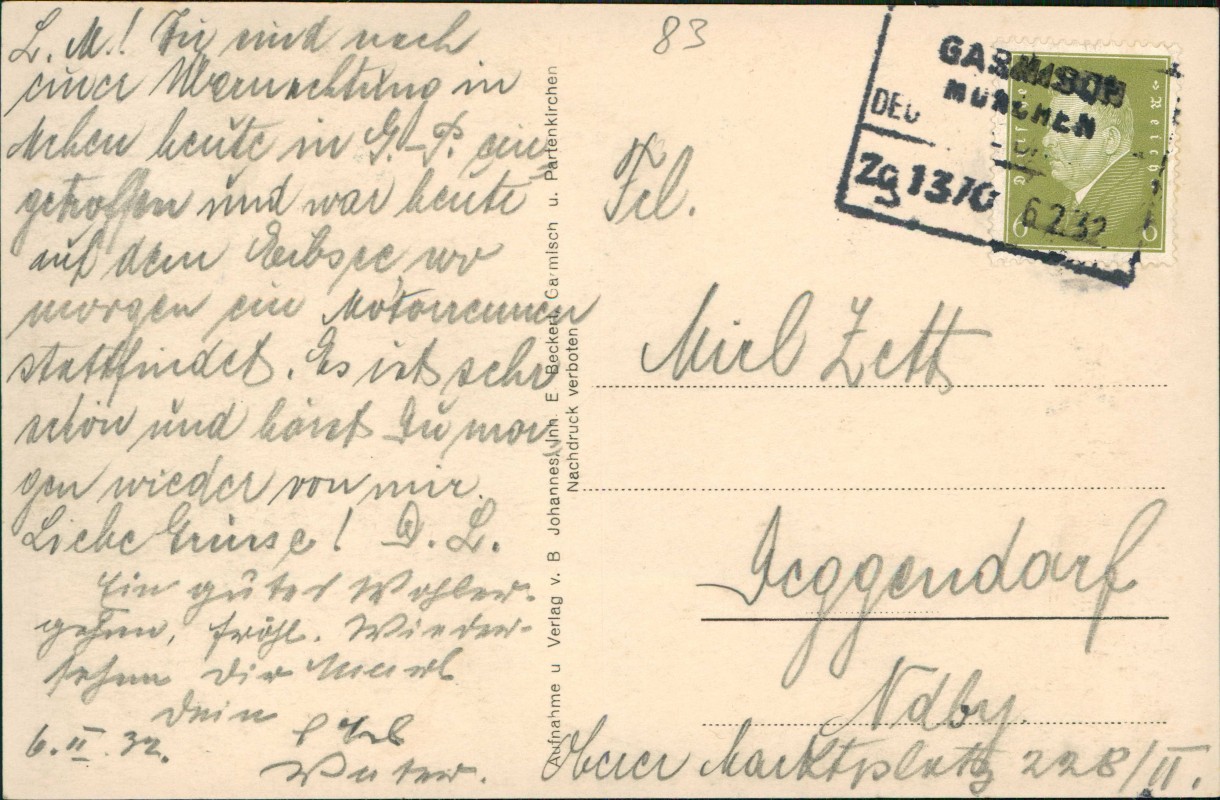 L. M.! Wir sind nach
einer Übernachtung in
München heute in G.-P. ein
getroffen und war heute
auf dem Eibsee wo
morgen ein Motorrennen
stattfindet. Es ist sehr
schön und hörst Du mor
gen wieder von mir.
Liebe Grüsse! D. L.
Ein gutes Wohler-
gehen, fröhl. Wieder-
sehen Dir
Dein
6. II. 32.
Vater.
Aufnahme u Verlag v. B Johannes, Inh. E Beckert, Garmisch u. Partenkirchen
Nachdruck verboten
83
GARMISCH
MÜNCHEN
DEU
Zg 1370
6.2.32
Deutsches Reich
6 6
Frl.
Miel Zett
Deggendorf
Ndby.
Oberer Marktplatz 228/II.